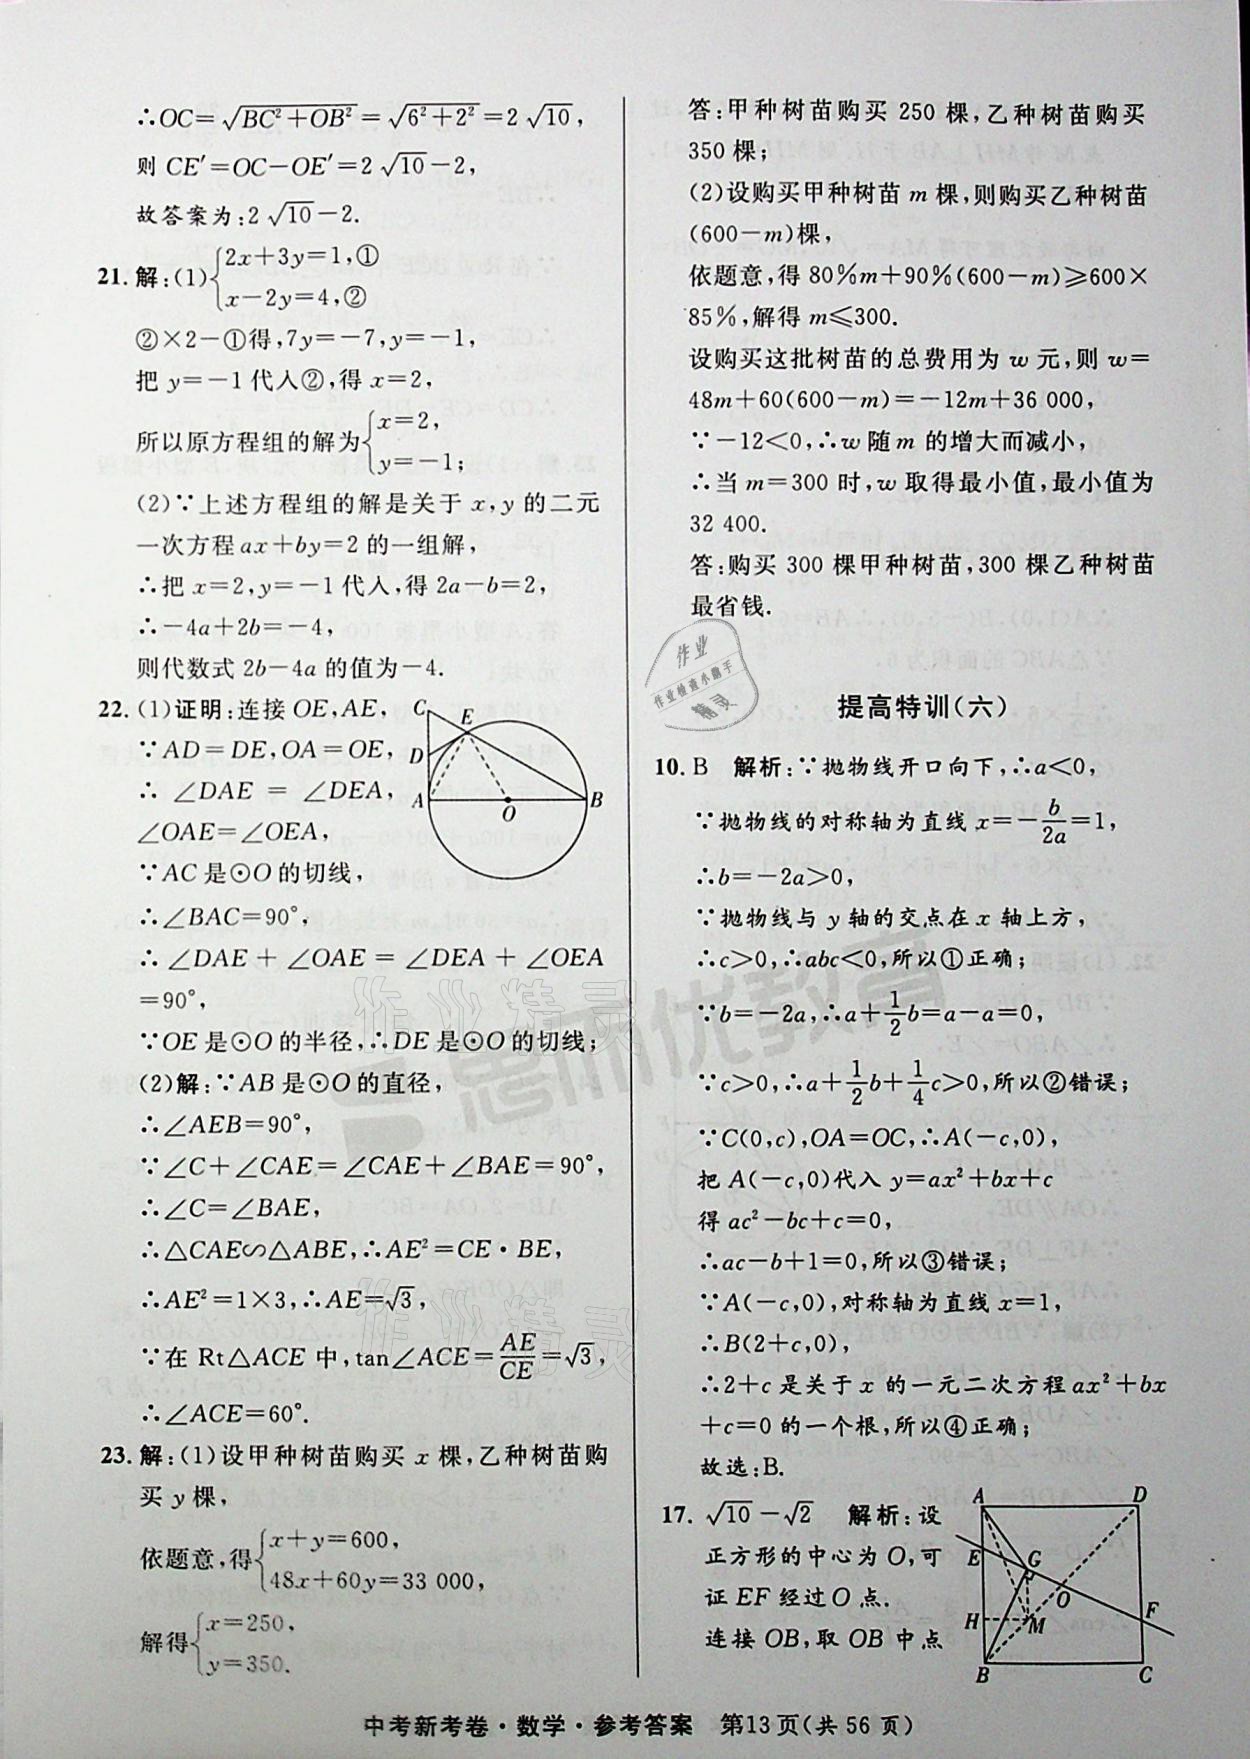 ∴OC=√(BC²+OB²)=√(6²+2²)=2√10,
则 CE′=OC−OE′=2√10−2,
故答案为:2√10−2.
21. 解:(1){2x+3y=1,①
x−2y=4,②
②×2−①得,7y=−7,y=−1,
把 y=−1代入②,得 x=2,
所以原方程组的解为{x=2,
y=−1;
(2)∵上述方程组的解是关于 x,y 的二元
一次方程ax+by=2 的一组解,
∴把 x=2,y=−1代入,得 2a−b=2,
∴−4a+2b=−4,
则代数式 2b−4a 的值为−4.
22. (1)证明:连接 OE,AE,
∵AD=DE,OA=OE,
∴ ∠DAE = ∠DEA,
∠OAE=∠OEA,
∵AC是⊙O的切线,
∴∠BAC=90°,
∴ ∠DAE + ∠OAE = ∠DEA + ∠OEA
=90°,
∵OE是⊙O的半径,∴DE是⊙O的切线;
(2)解:∵AB是⊙O的直径,
∴∠AEB=90°,
∵∠C+∠CAE=∠CAE+∠BAE=90°,
∴∠C=∠BAE,
∴△CAE∽△ABE,∴AE²=CE·BE,
∴AE²=1×3,∴AE=√3,
∵在 Rt△ACE 中,tan∠ACE=AE/CE=√3,
∴∠ACE=60°.
23. 解:(1)设甲种树苗购买 x 棵,乙种树苗购
买 y 棵,
依题意,得{x+y=600,
48x+60y=33 000,
解得{x=250,
y=350.
C
E
D
A
O
B
答:甲种树苗购买 250 棵,乙种树苗购买
350棵;
(2)设购买甲种树苗 m 棵,则购买乙种树苗
(600−m)棵,
依题意,得 80%m+90%(600−m)≥600×
85%,解得 m≤300.
设购买这批树苗的总费用为 w 元,则 w=
48m+60(600−m)=−12m+36 000,
∵−12<0,∴w 随 m 的增大而减小,
∴当 m=300 时,w 取得最小值,最小值为
32 400.
答:购买 300 棵甲种树苗,300 棵乙种树苗
最省钱.
作业
作业检查小助手
精灵
提高特训(六)
10. B 解析:∵抛物线开口向下,∴a<0,
∵抛物线的对称轴为直线 x=−b/2a=1,
∴b=−2a>0,
∵抛物线与 y 轴的交点在 x 轴上方,
∴c>0,∴abc<0,所以①正确;
∵b=−2a,∴a+1/2b=a−a=0,
∵c>0,∴a+1/2b+1/4c>0,所以②错误;
∵C(0,c),OA=OC,∴A(−c,0),
把 A(−c,0)代入 y=ax²+bx+c
得 ac²−bc+c=0,
∴ac−b+1=0,所以③错误;
∵A(−c,0),对称轴为直线 x=1,
∴B(2+c,0),
∴2+c 是关于 x 的一元二次方程ax²+bx
+c=0 的一个根,所以④正确;
故选:B.
17. √10−√2 解析:设
正方形的中心为 O,可
证 EF 经过 O 点.
连接 OB,取 OB 中点
A
D
E
G
O
F
H
M
B
C
作业精灵
思而优教育
作业精灵
中考新考卷·数学·参考答案 第13页(共 56 页)